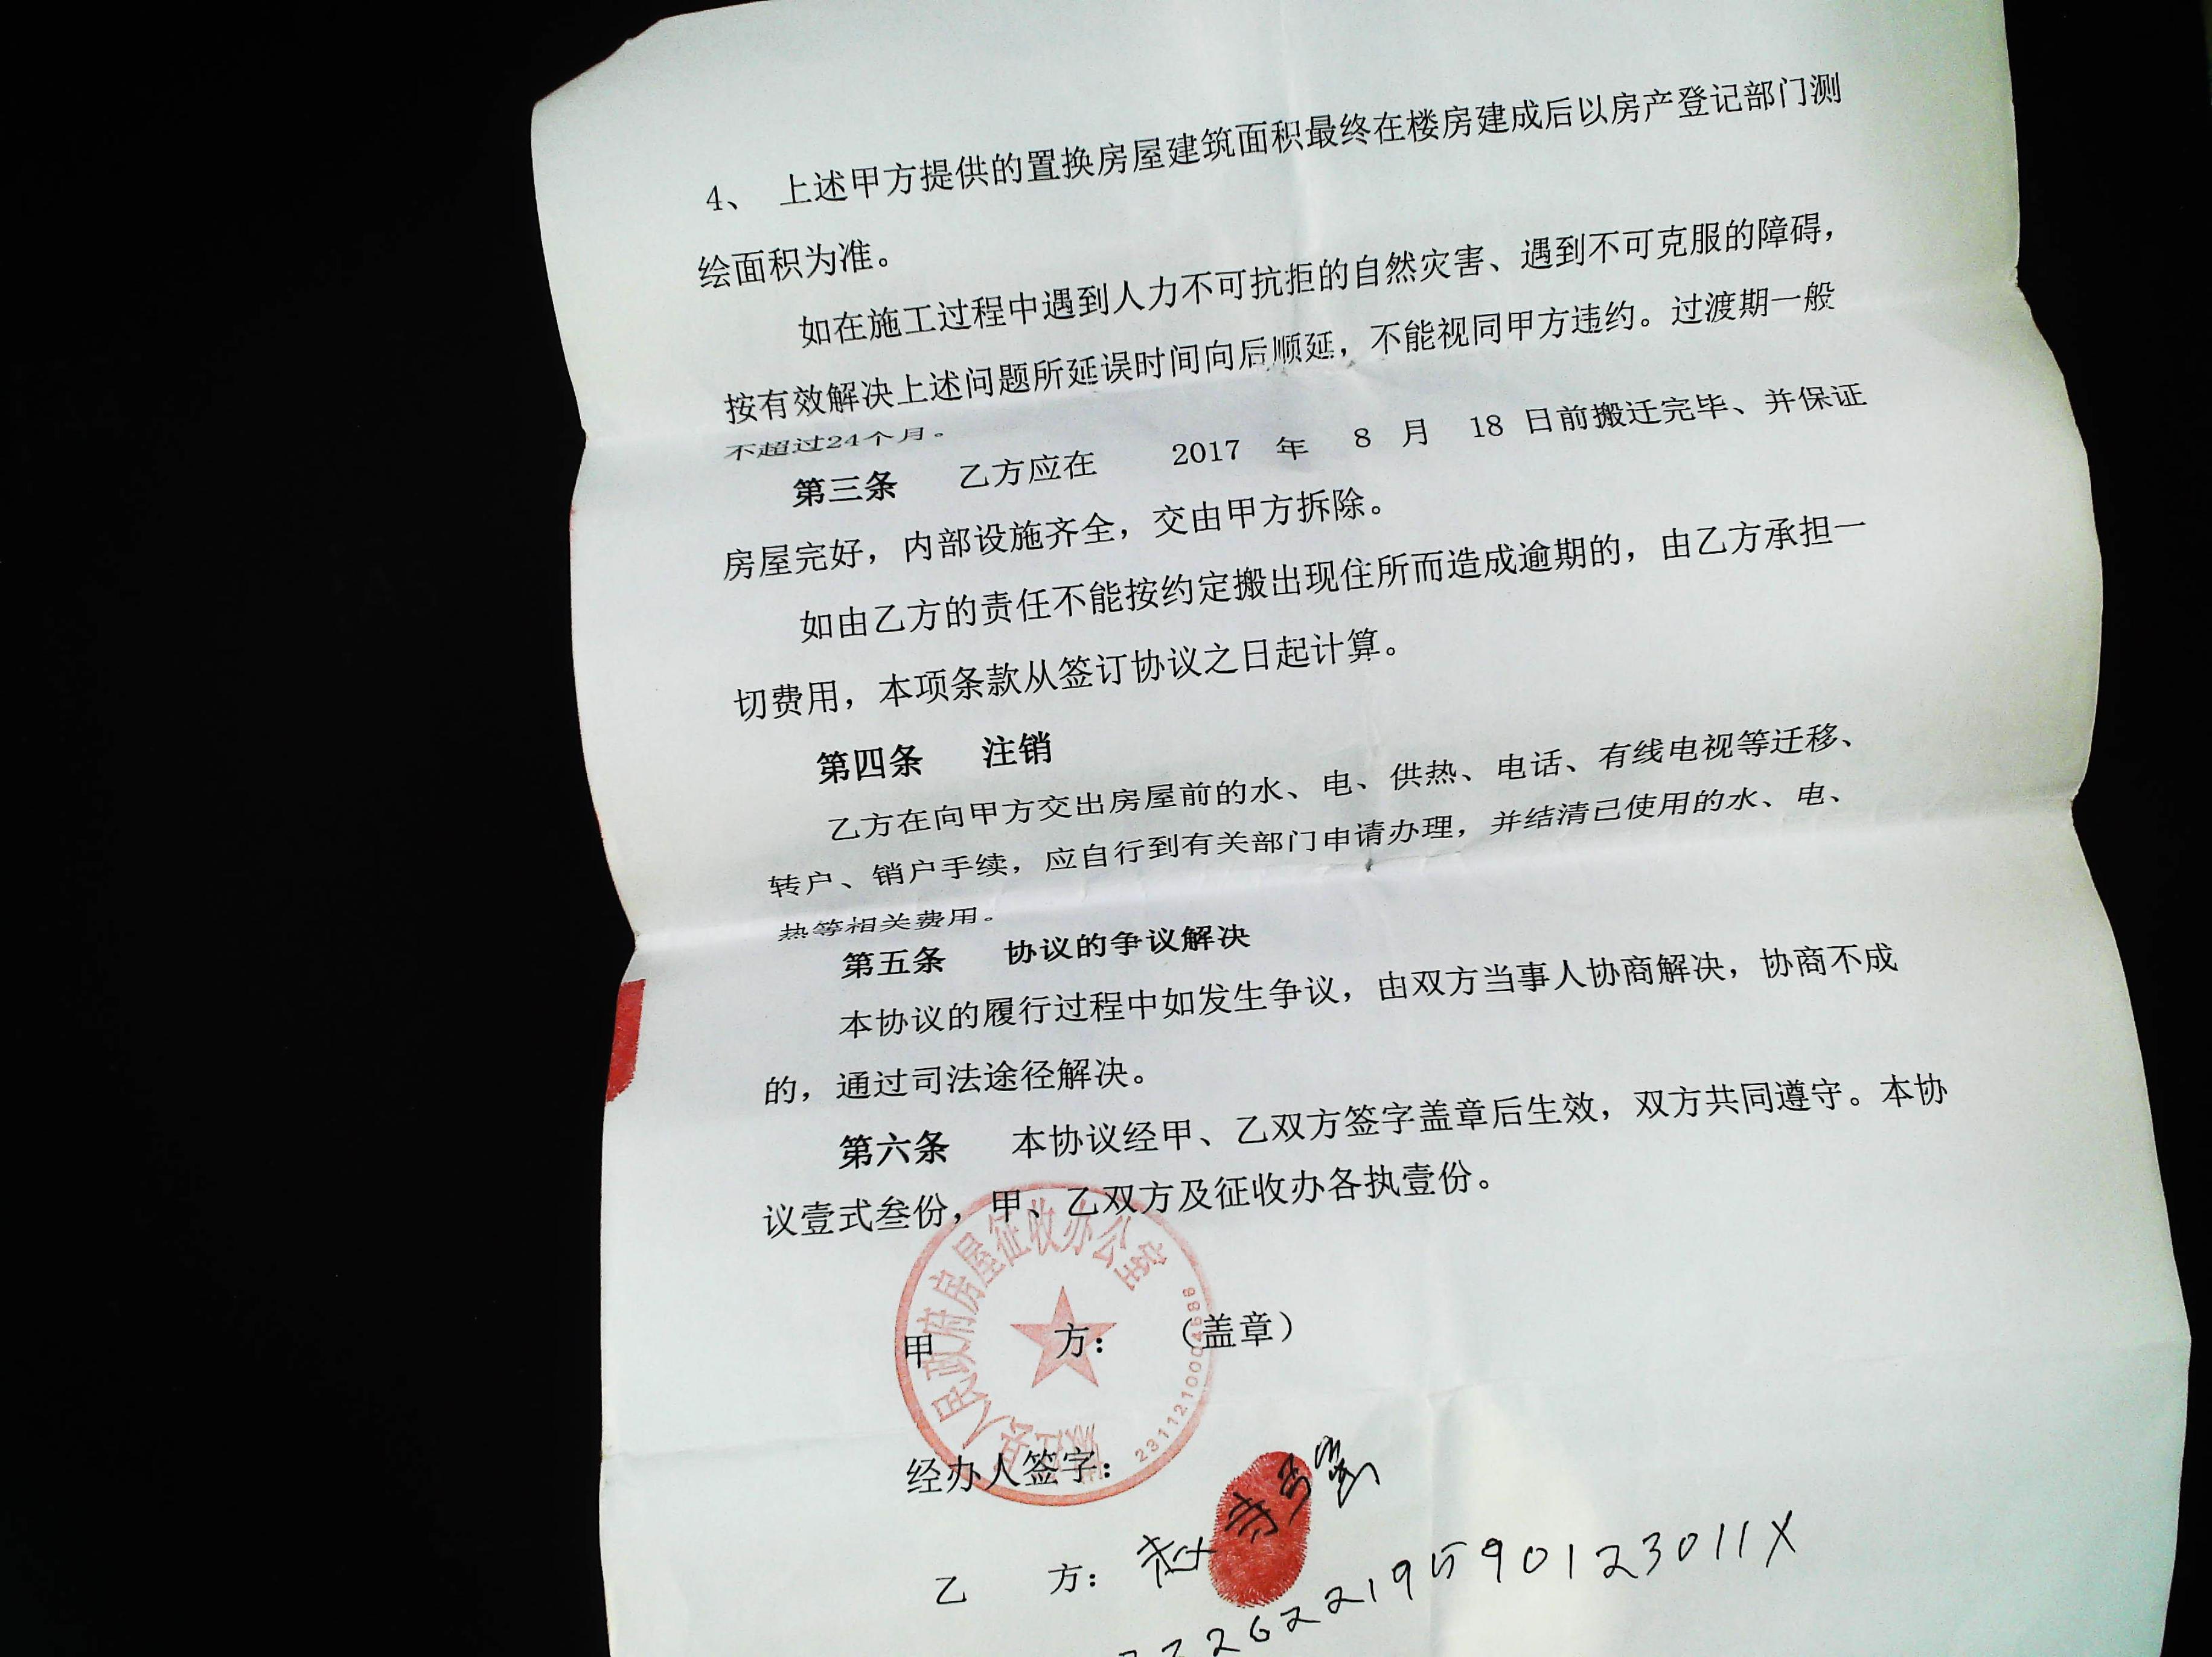 4、 上述甲方提供的置换房屋建筑面积最终在楼房建成后以房产登记部门测
绘面积为准。
如在施工过程中遇到人力不可抗拒的自然灾害、遇到不可克服的障碍，
按有效解决上述问题所延误时间向后顺延，不能视同甲方违约。过渡期一般
不超过24个月。
第三条 乙方应在 2017 年 8 月 18 日前搬迁完毕、并保证
房屋完好，内部设施齐全，交由甲方拆除。
如由乙方的责任不能按约定搬出现住所而造成逾期的，由乙方承担一
切费用，本项条款从签订协议之日起计算。
第四条 注销
乙方在向甲方交出房屋前的水、电、供热、电话、有线电视等迁移、
转户、销户手续，应自行到有关部门申请办理，并结清已使用的水、电、
热等相关费用。
第五条 协议的争议解决
本协议的履行过程中如发生争议，由双方当事人协商解决，协商不成
的，通过司法途径解决。
第六条 本协议经甲、乙双方签字盖章后生效，双方共同遵守。本协
议壹式叁份，甲、乙双方及征收办各执壹份。
人民政府房屋征收办公室
甲 方： （盖章）
经办人签字：
乙 方：
262219590123011X